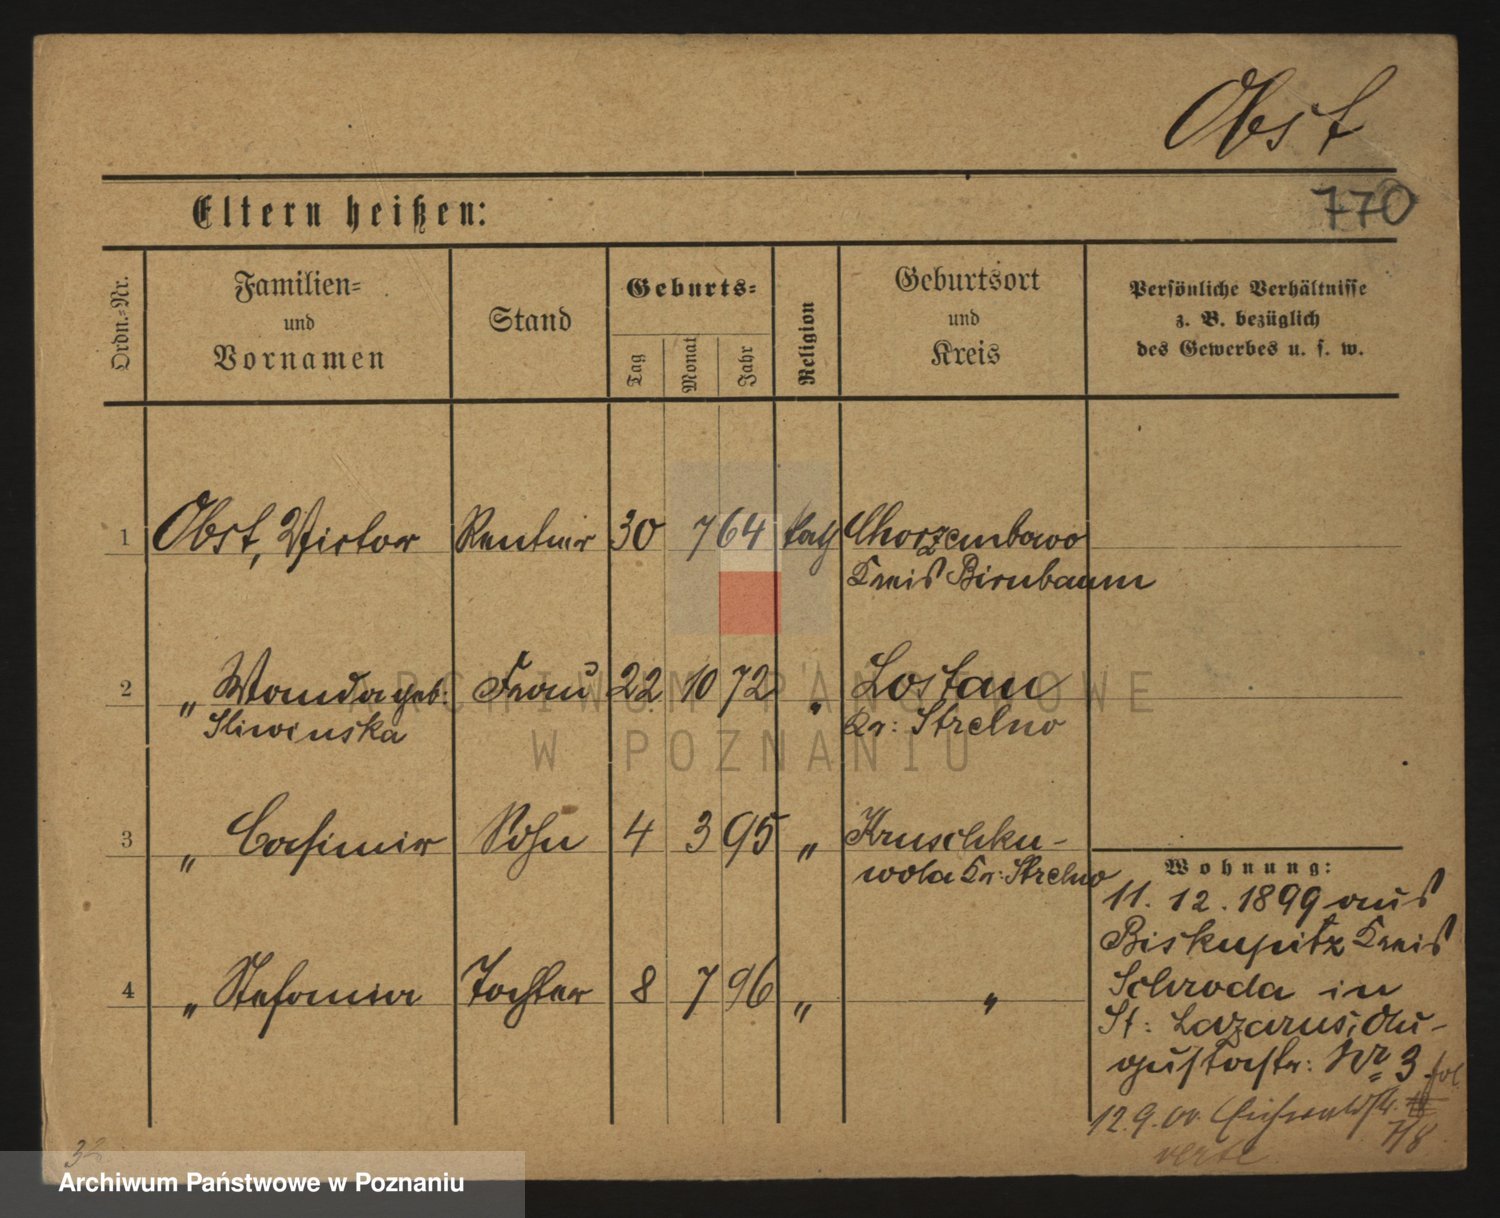 Obst
770
Eltern heißen:
Ordn.-Nr.
Familien-
und
Vornamen
Stand
Geburts-
Tag
Monat
Jahr
Religion
Geburtsort
und
Kreis
Persönliche Verhältnisse
z. B. bezüglich
des Gewerbes u. s. w.
1 Obst, Victor Rentier 30 7 64 kath Chorzembowo
Kreis Birnbaum
2 " Wanda geb: Frau 22 10 72 " Lostau
Sliwinska Kr: Strelno
3 " Casimir Sohn 4 3 95 " Kruschku-
wola Kr: Strelno
4 " Stefania Tochter 8 7 96 " "
Wohnung:
11. 12. 1899 aus
Biskupitz Kreis
Schroda in
St: Lazarus, Au-
gustastr: Nr 3
12. 9. 00. Eichwaldstr.
7/8
verte
ARCHIWUM PAŃSTWOWE
W POZNANIU
Archiwum Państwowe w Poznaniu